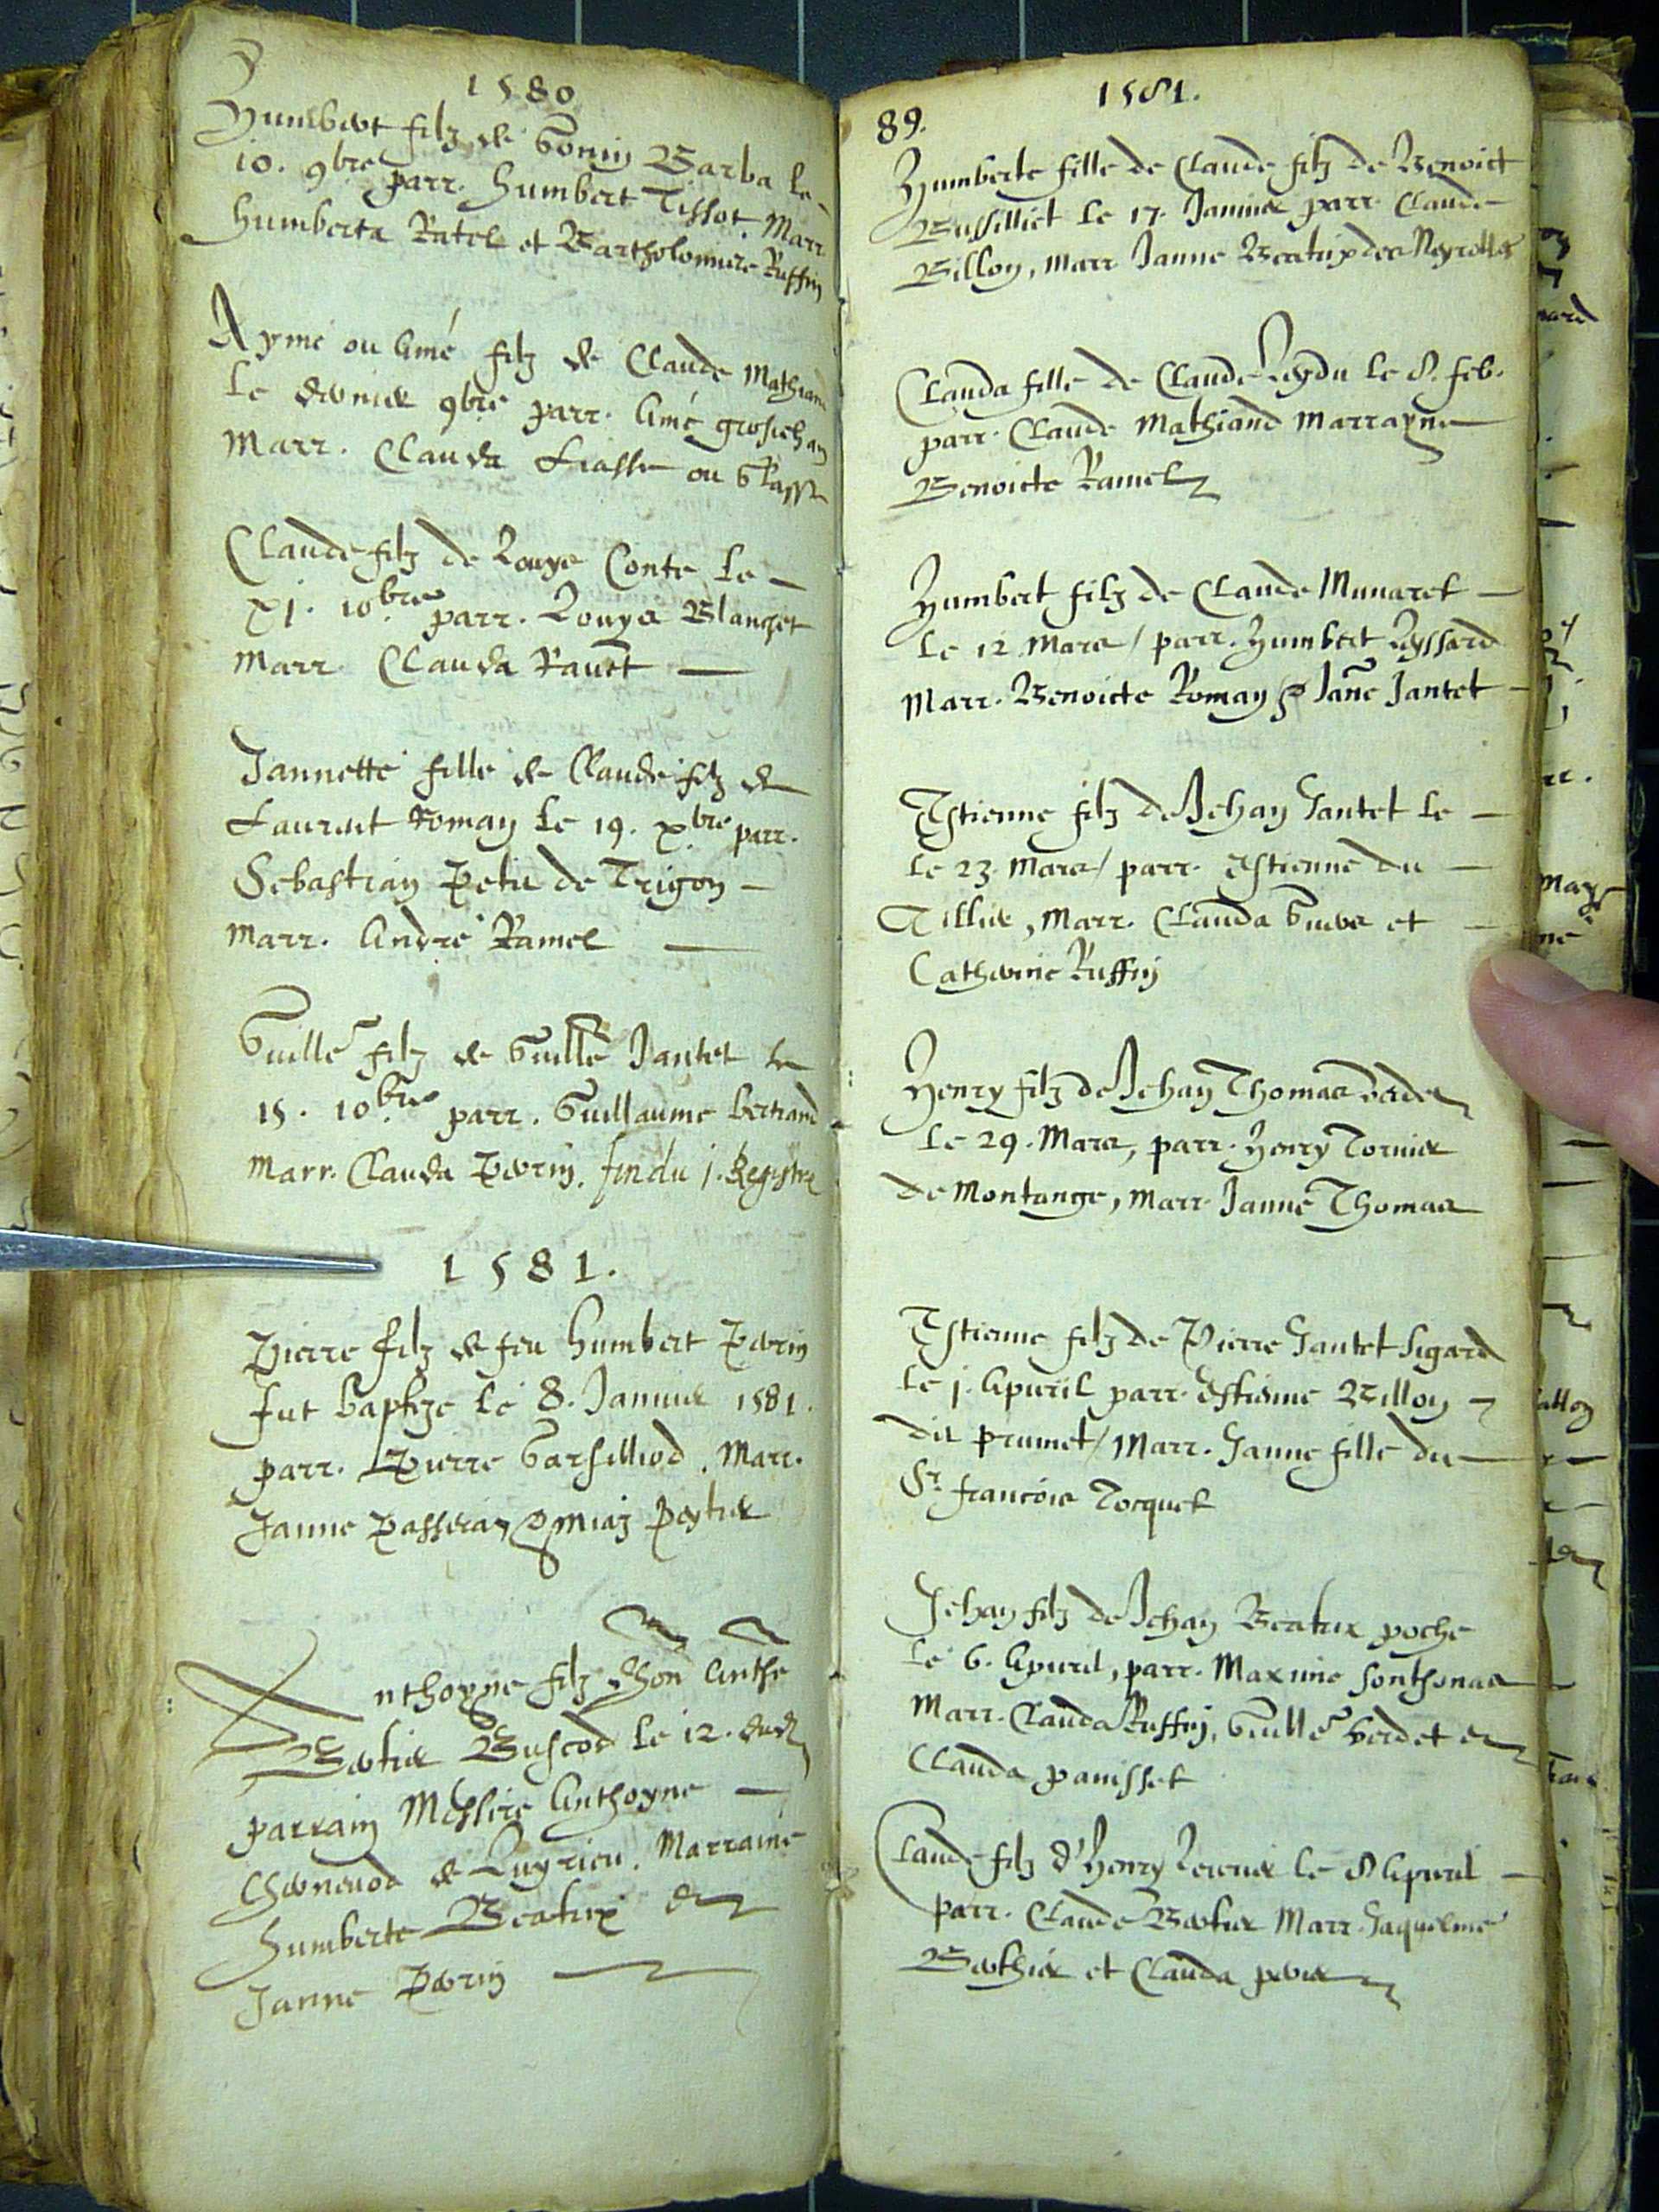 1580
Humbert filz de Gonin Barba le
10. 9bre parr. humbert Tissot. Marr.
humberta Ratel et Bartholomiere Ruffin
Aymé ou Amé filz de Claude Mathiand
le dernier 9bre parr. Amé grosjehan
Marr. Clauda ou
Claude filz de Louys Conte le
xj. 10bre parr. Louys Blanget
Marr. Clauda Ravet
Jannette fille de Claude filz de
Laurent Roman le 19. xbre parr.
Sebastian Petit de Trigon
Marr. André Ramel
Guille filz de Guille Jantet le
15. 10bre parr. Guillaume bertrand
Marr. Clauda Perrin. fin du j. Registre
1581.
Pierre filz de feu humbert Perrin
fut baptize le 8. Januier 1581.
parr. Pierre Garsilliod. Marr.
Janne Passerat
Anthoyne filz d'hon Anthe
Bertier Buscod le 12. dud
parrain Messire Anthoyne
de Luyrieu. Marraine
humberte Beatrix et
Janne Perrin
1581.
89.
Humberte fille de Claude filz de Benoict
Bussilliet le 17. Januier parr. Claude
Billon, Marr Janne Beatrix des Neyrolles
Clauda fille de Claude Leydu le 8. feb.
parr. Claude Mathiand Marrayne
Benoicte Ramel
Humbert filz de Claude Munaret
le 12 Mars / parr. Humbert Leyssard
Marr. Benoicte Roman & Jane Jantet
Estienne filz de Jehan Jantet le
le 23. Mars / parr. Estienne du
Tillier, Marr. Clauda et
Catherine Ruffin
Henry filz de Jehan Thomas
le 29. Mars, parr. Henry Tornier
de Montange, Marr. Janne Thomas
Estienne filz de Pierre Jantet Sigard
le j. Apuril parr. Estienne Billon
dit prumet / Marr. Janne fille du
Sr. francois Tocquet
Jehan filz de Jehan Beatrix poche
le 6. Apuril, parr. Maxime Sonthonas
Marr. Clauda Ruffin, Guille berdet et
Clauda panisset
Claude filz d'Henry le 8 Apuril
parr. Claude Bertier Marr. Jaquelme
Berthier et Clauda